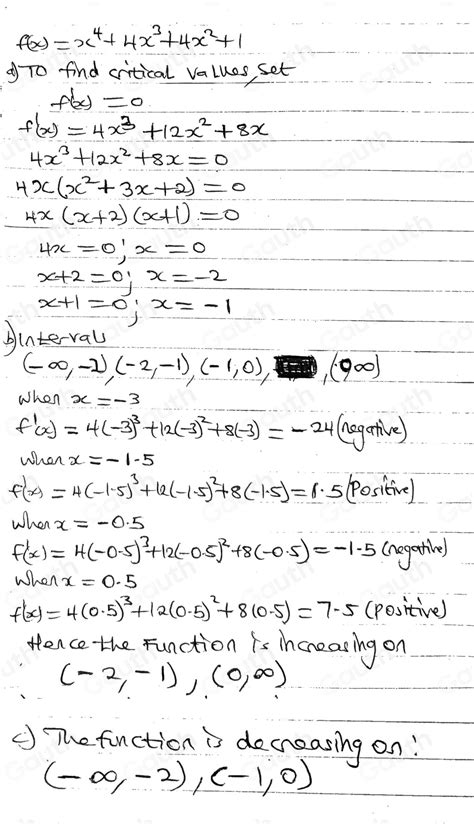 f(x) = x⁴ + 4x³ + 4x² + 1
a) To find critical values, set
f'(x) = 0
f'(x) = 4x³ + 12x² + 8x
4x³ + 12x² + 8x = 0
4x(x² + 3x + 2) = 0
4x (x+2)(x+1) = 0
4x = 0; x = 0
x+2 = 0; x = -2
x+1 = 0; x = -1
b) Intervals
(-∞, -2), (-2, -1), (-1, 0), (0∞)
when x = -3
f'(x) = 4(-3)³ + 12(-3)² + 8(-3) = -24 (negative)
when x = -1.5
f'(x) = 4(-1.5)³ + 12(-1.5)² + 8(-1.5) = 1.5 (Positive)
when x = -0.5
f'(x) = 4(-0.5)³ + 12(-0.5)² + 8(-0.5) = -1.5 (negative)
when x = 0.5
f'(x) = 4(0.5)³ + 12(0.5)² + 8(0.5) = 7.5 (positive)
Hence the Function is increasing on
(-2, -1), (0, ∞)
c) The function is decreasing on:
(-∞, -2), (-1, 0)